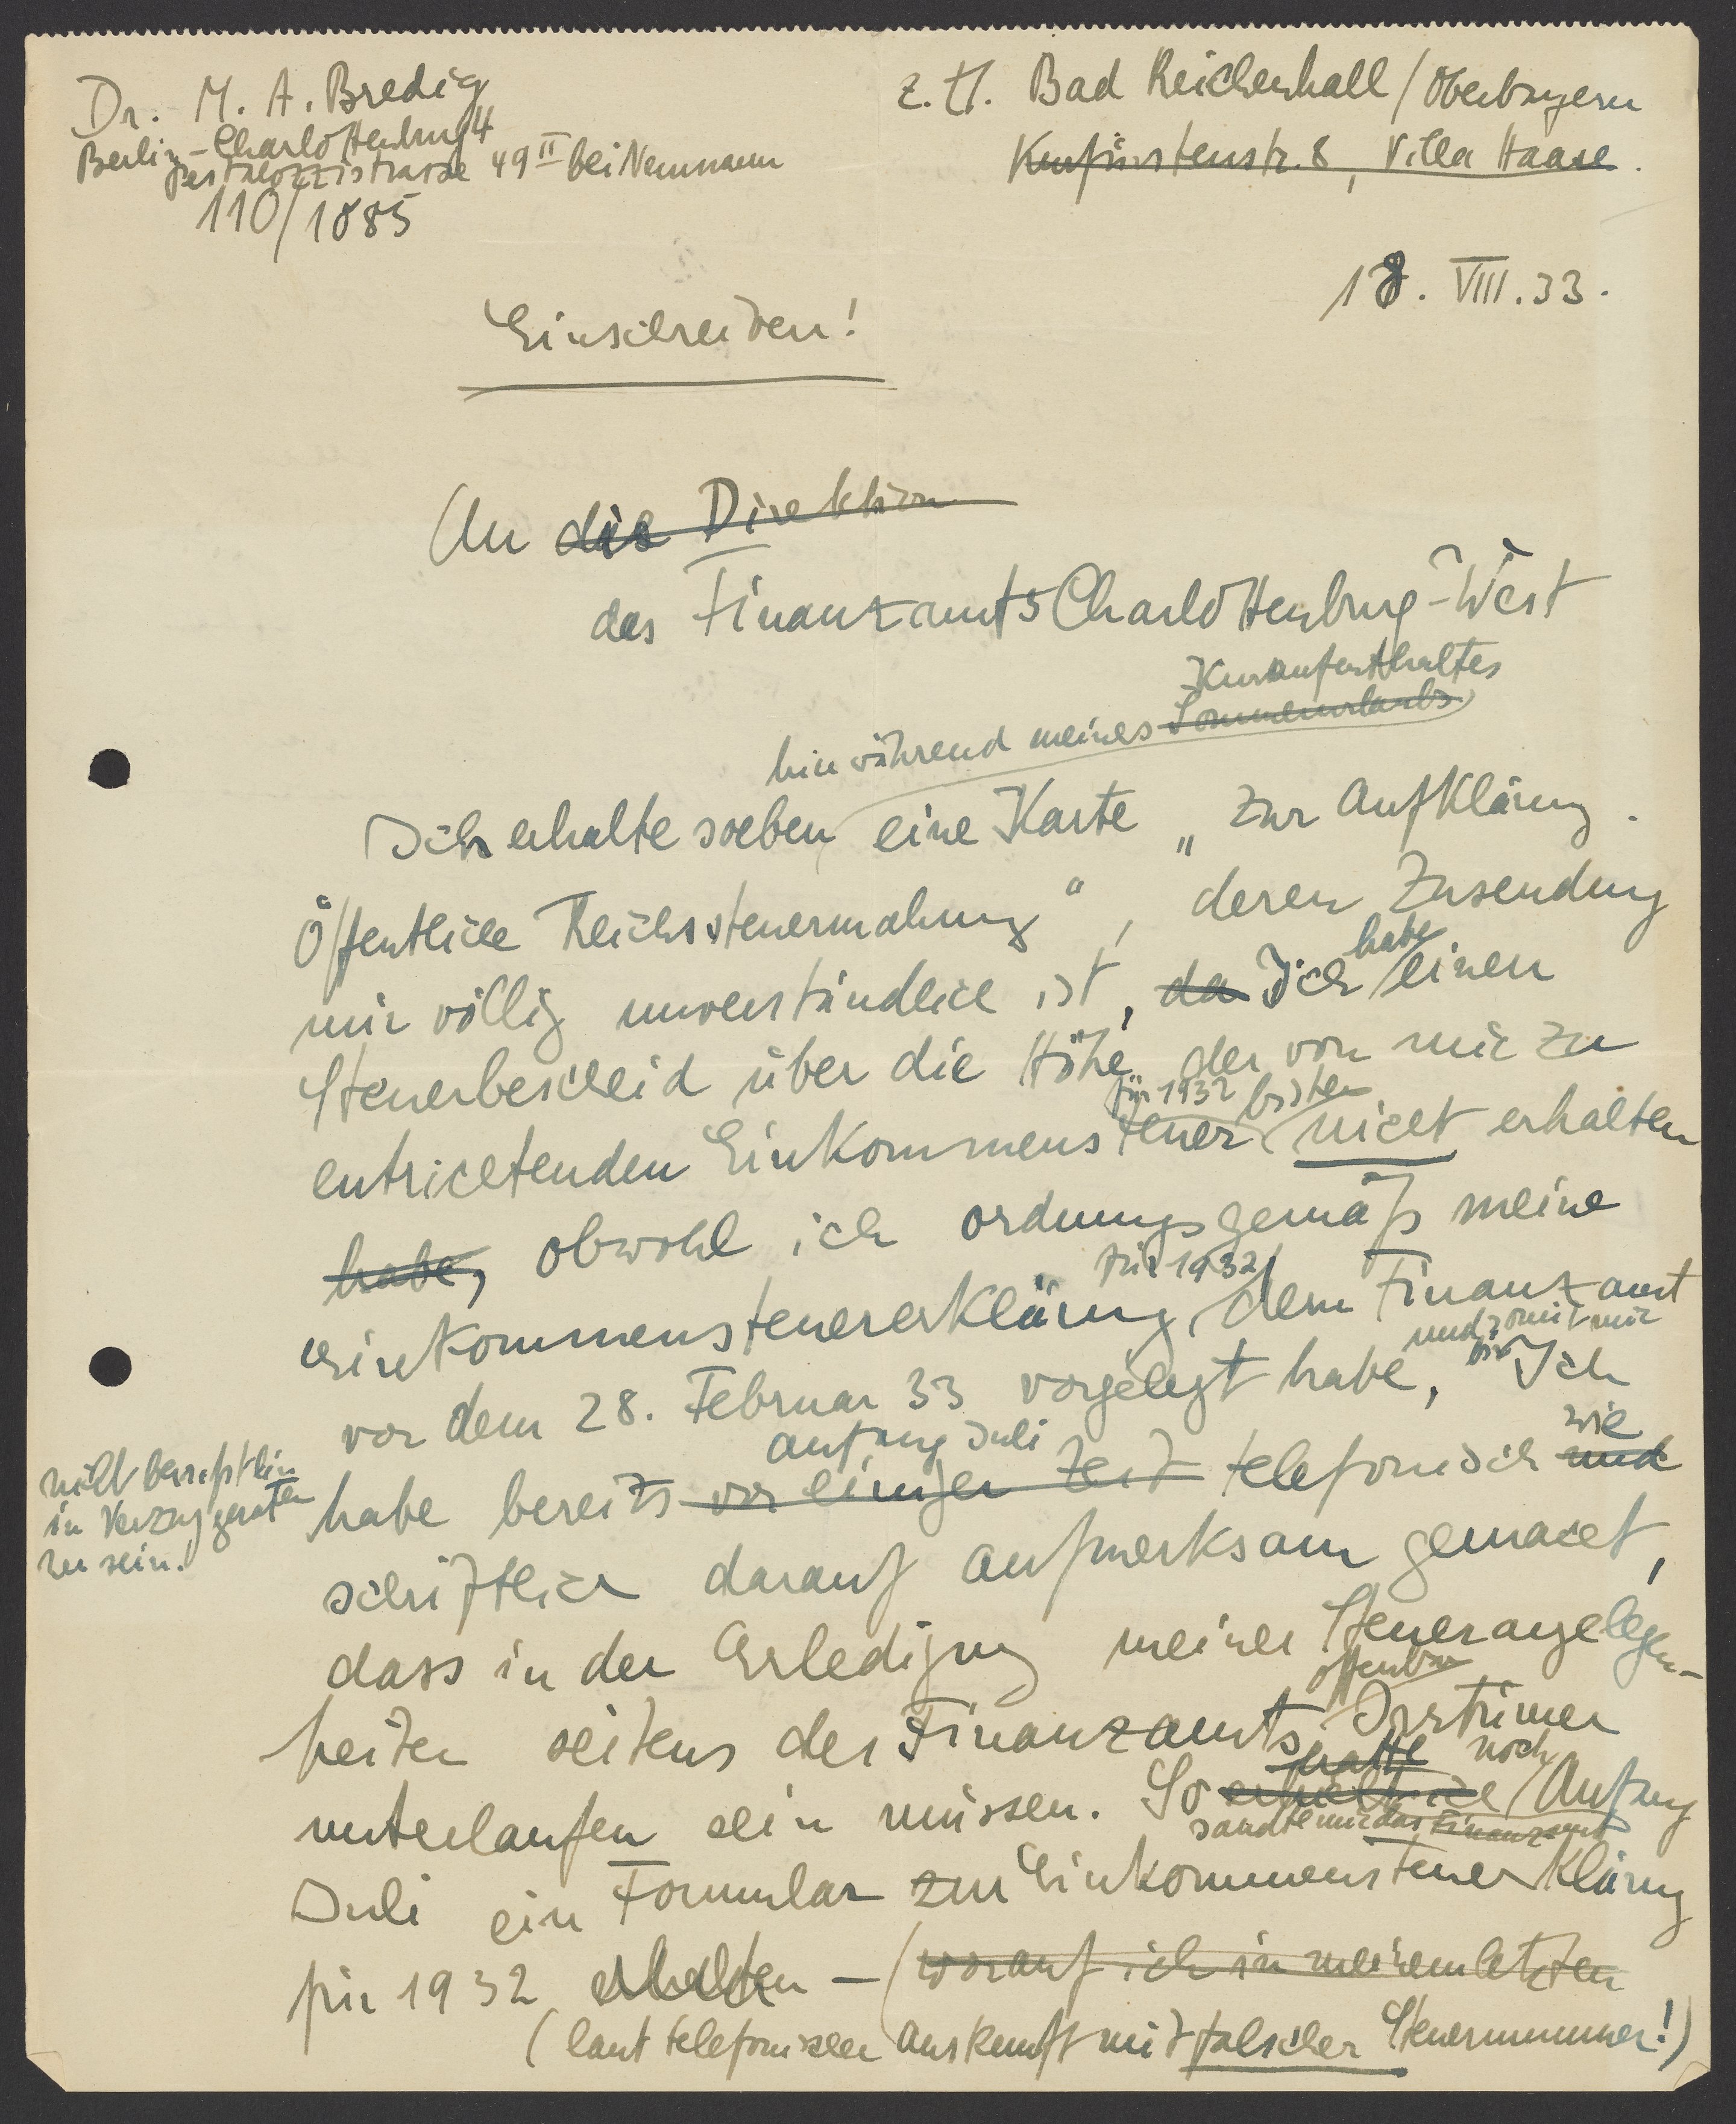 Dr. M. A. Bredig
Berlin-Charlottenburg 4
Pestalozzistrasse 49 II bei Neumann
110/1085
z. Zt. Bad Reichenhall / Oberbayern
Kurfürstenstr. 8, Villa Haase.
18. VIII. 33.
Einschreiben!
An die Direktion
des Finanzamts Charlottenburg-West
Kuraufenthaltes
hier während meines Sommerurlaubs
Ich erhalte soeben eine Karte „Zur Aufklärung.
Öffentliche Reichssteuermahnung“, deren Zusendung
habe
mir völlig unverständlich ist, da Ich einen
Steuerbescheid über die Höhe der von mir zu
für 1932 bisher
entrichtenden Einkommensteuer nicht erhalten
habe, obwohl ich ordnungsgemäß meine
für 1932
Einkommensteuererklärung dem Finanzamt
und somit mir
vor dem 28. Februar 33 vorgelegt habe, bin Ich
nicht bewusst bin
in Verzug geraten
zu sein.
Anfang Juli
wie
habe bereits vor einiger Zeit telefonisch und
schriftlich darauf aufmerksam gemacht,
dass in der Erledigung meiner Steuerangelegen-
offenbar
heiten seitens des Finanzamts Irrtümer
hatte noch
unterlaufen sein müssen. So erhielt ich Anfang
sandte mir das Finanzamt
Juli ein Formular zur Einkommensteuerklärung
für 1932 erhalten — (worauf ich in meinem letzten
(laut telefonischer Auskunft mit falscher Steuernummer!)